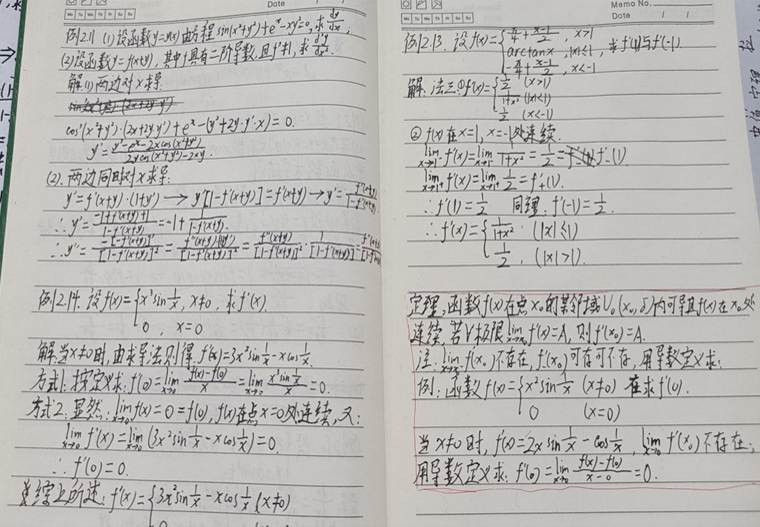 Date
例2.11 (1)设函数y=y(x)由方程sin(x²+y²)+eˣ-xy²=0,求dy/dx
(2)设函数y=f(x+y),其中f具有二阶导数,且f'≠1,求d²y/dx².
解:(1)两边对x求导
cos(x²+y²)·(2x+2y·y')+eˣ-(y²+2y·y'·x)=0.
y'=(y²-eˣ-2xcos(x²+y²))/(2ycos(x²+y²)-2xy).
(2).两边同时对x求导:
y'=f'(x+y)·(1+y')→y'[1-f'(x+y)]=f'(x+y)→y'=f'(x+y)/(1-f'(x+y))
∴y'=(-1+f'(x+y)+1)/(1-f'(x+y))=-1+1/(1-f'(x+y)).
∴y''=-[1-f'(x+y)]'/[1-f'(x+y)]²=f''(x+y)(1+y')/[1-f'(x+y)]²=f''(x+y)/[1-f'(x+y)]²·1/[1-f'(x+y)]
例2.14.设f(x)={x³sin1/x, x≠0, 求f'(x).
0, x=0
解:当x≠0时,由求导法则得:f'(x)=3x²sin1/x-xcos1/x.
方式1:按定义求:f'(0)=lim x→0 (f(x)-f(0))/x=lim x→0 (x³sin1/x)/x=0.
方式2:显然:lim x→0 f(x)=0=f(0),f(x)在点x=0处连续,又:
lim x→0 f'(x)=lim x→0 (3x²sin1/x-xcos1/x)=0.
∴f'(0)=0.
综上所述:f'(x)={3x²sin1/x-xcos1/x (x≠0)
Memo No.
Date
例2.13.设f(x)={π/4+(x-1)/2, x>1
arctanx, |x|≤1, 求f'(1)与f'(-1).
-π/4+(x-1)/2, x<-1
解:法三:①f'(x)={1/2 (x>1)
1/(1+x²) (|x|<1)
1/2 (x<-1)
②f(x)在x=1,x=-1处连续.
lim x→1⁻ f'(x)=lim x→1⁻ 1/(1+x²)=1/2=f'₋(1)
lim x→1⁺ f'(x)=lim x→1⁺ 1/2=f'₊(1).
∴f'(1)=1/2 同理:f'(-1)=1/2.
∴f'(x)={1/(1+x²), (|x|≤1)
1/2, (|x|>1).
定理,函数f(x)在点x₀的某邻域U₀(x₀,δ)内可导且f(x)在x₀处
连续,若极限lim x→x₀ f'(x)=A,则f'(x₀)=A.
注:lim x→x₀ f'(x₀)不存在,f'(x₀)可存可不存,用导数定义求.
例:函数f(x)={x²sin1/x (x≠0) 在求f'(0).
0 (x=0)
当x≠0时,f'(x)=2xsin1/x-cos1/x, lim x→0 f'(x₀)不存在;
用导数定义求:f'(0)=lim x→0 (f(x)-f(0))/(x-0)=0.